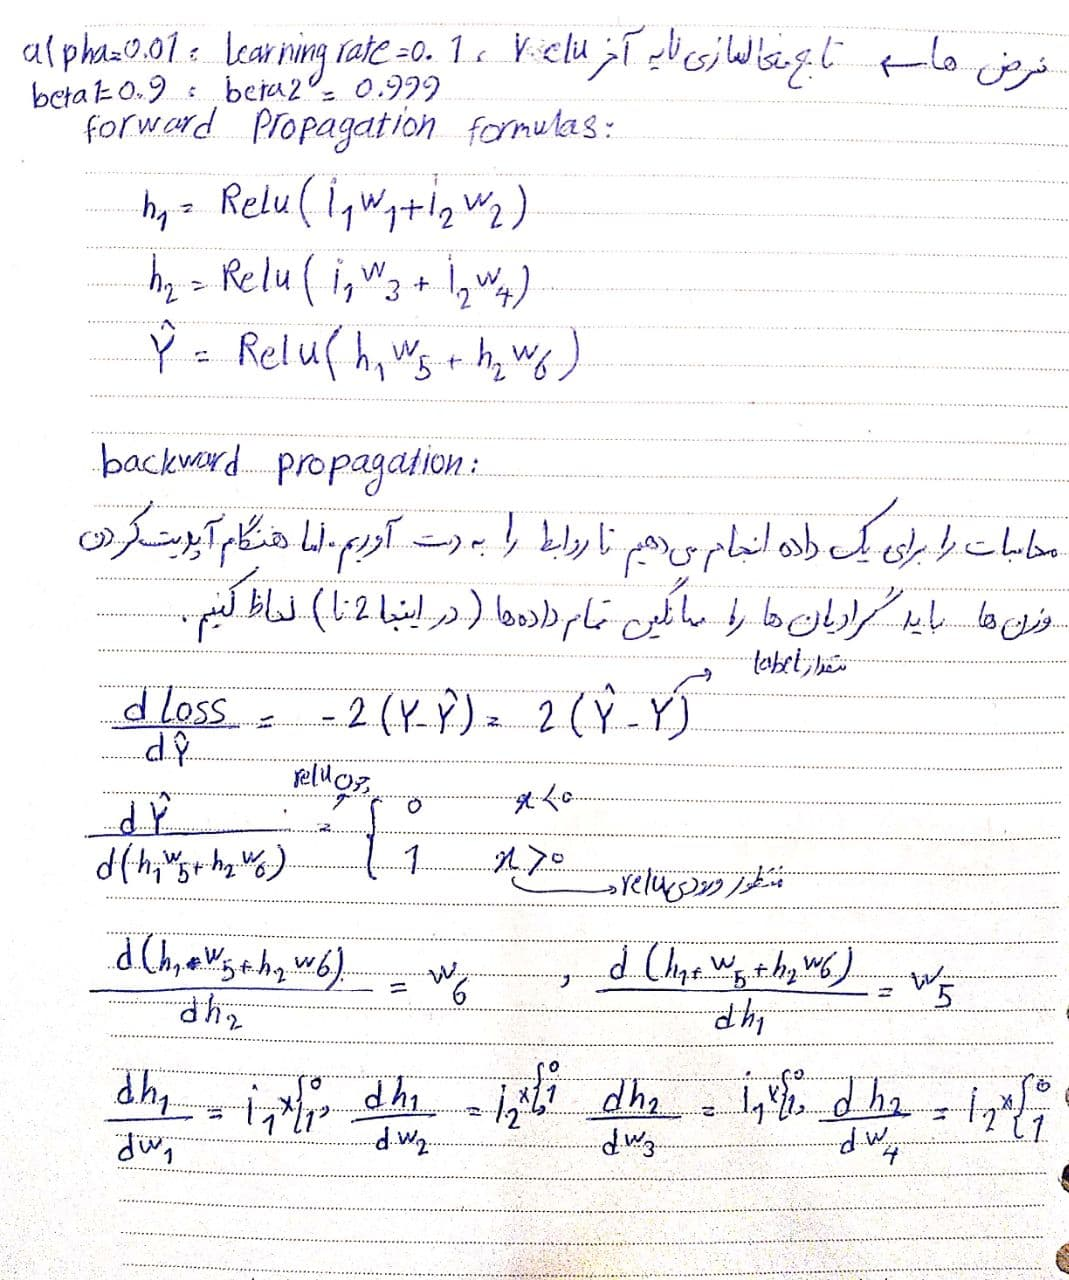 فرض ها ← تابع فعالسازی لایه آخر Relu ، learning rate=0.1 ، alpha=0.01
beta1=0.9 ، beta2=0.999
forward Propagation formulas:
h₁ = Relu(i₁w₁+i₂w₂)
h₂ = Relu(i₁w₃+i₂w₄)
Ŷ = Relu(h₁w₅+h₂w₆)
backward propagation:
محاسبات را برای یک داده انجام می دهیم تا روابط را به دست آوریم. اما هنگام آپدیت کردن
وزن ها باید گرادیان ها را میانگین تمام داده ها (در اینجا 2 تا) لحاظ کنیم.
مقدار label
dLoss/dŶ = -2(Y-Ŷ) = 2(Ŷ-Y)
چون relu
dŶ/d(h₁w₅+h₂w₆) = { 0 x<0
1 x>0
منظور ورودی relu
d(h₁w₅+h₂w₆)/dh₂ = w₆ , d(h₁w₅+h₂w₆)/dh₁ = w₅
dh₁/dw₁ = i₁×{0 1, dh₁/dw₂ = i₂×{0 1, dh₂/dw₃ = i₁×{0 1, dh₂/dw₄ = i₂×{0 1